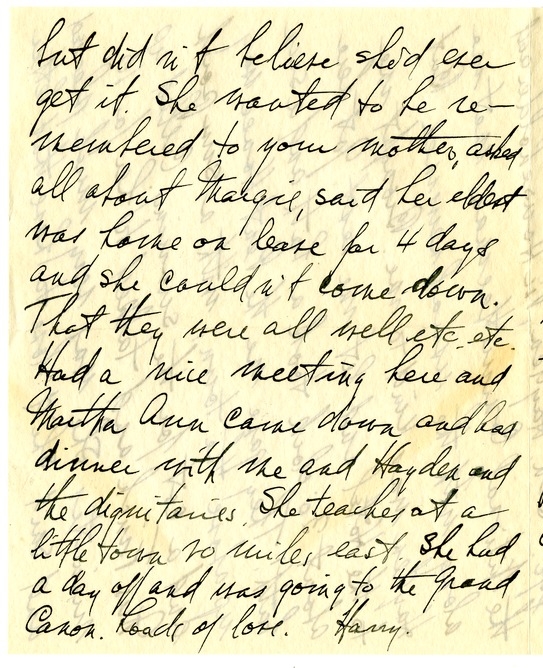 but did n't believe she'd ever
get it. She wanted to be re-
membered to your mother, asked
all about Margie, said her eldest
was home on leave for 4 days
and she could n't come down.
That they were all well etc. etc.
Had a nice meeting here and
Martha Ann came down and had
dinner with me and Hayden and
the dignitaries. She teaches at a
little town 20 miles east. She had
a day off and was going to the Grand
Canon. Loads of love. Harry.